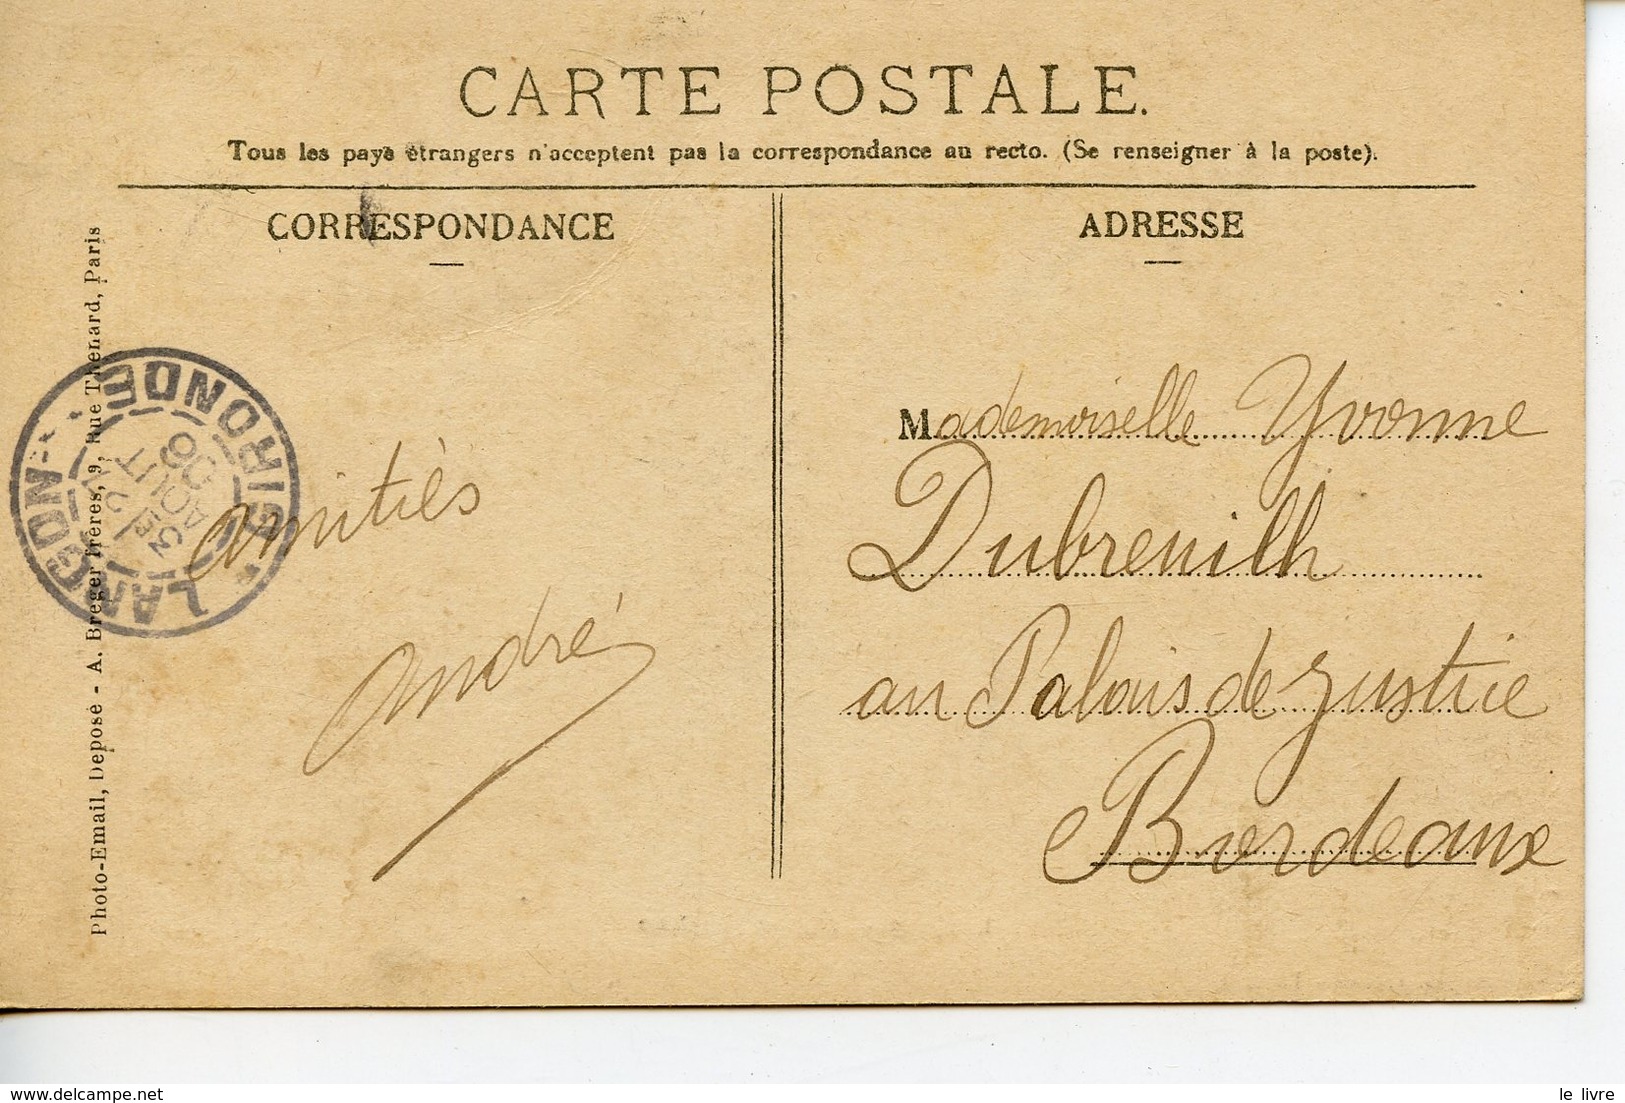 CARTE POSTALE.
Tous les pays étrangers n'acceptent pas la correspondance au recto. (Se renseigner à la poste).
CORRESPONDANCE
ADRESSE
Photo-Email, Déposé - A. Breger frères, 9, Rue Thénard, Paris
LANGON GIRONDE
3E
AOUT
06
amitiés
andré
Mademoiselle Yvonne
Dubreuilh
au Palais de Justice
Bordeaux
le livre